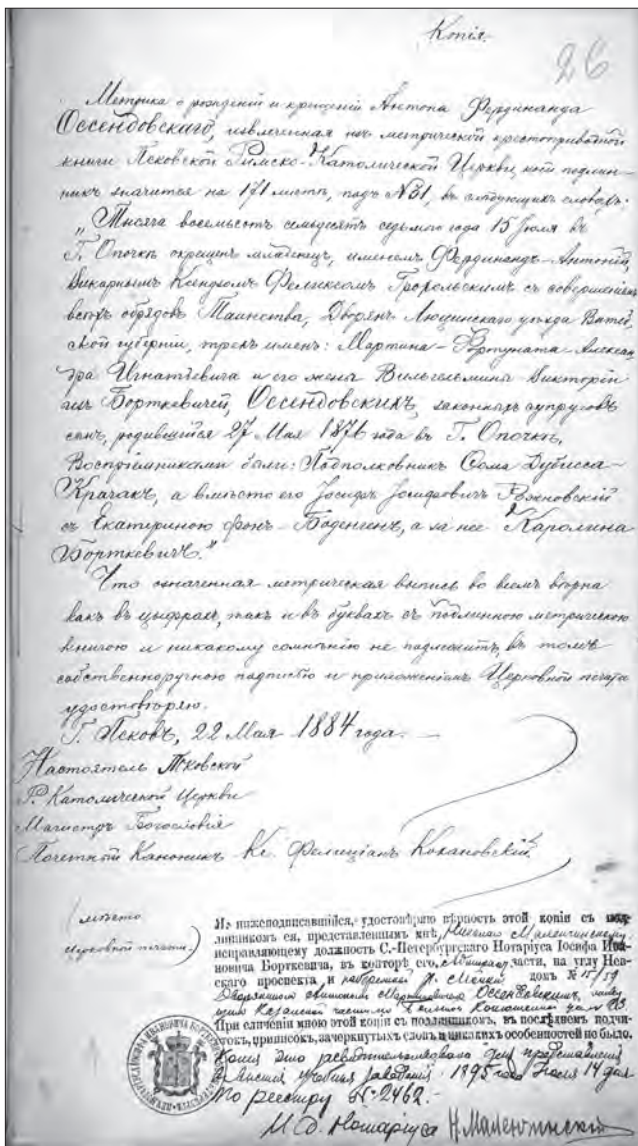 Копія.
26
Метрика о рожденіи и крещеніи Антона Фердинанда
Оссендовскаго, извлеченная изъ метрической крестоприводной
книги Псковской Римско-Католической Церкви, кой подлин-
никъ значится на 171 листѣ, подъ №31, въ слѣдующихъ словахъ:
„Тысяча восемьсотъ семьдесятъ седьмого года 15 Іюля въ
Г. Опочкѣ окрещенъ младенецъ, именемъ Фердинандъ-Антоній,
Викарнымъ Ксендзомъ Феликсомъ съ совершеніемъ
всѣхъ обрядовъ Таинства, Дворянъ Люцинскаго уѣзда Витеб-
ской губерніи, трехъ именъ: Мартина-Фортуната-Алексан-
дра Игнатьевича и его жены Вильгельмины-Викторіи
изъ Борткевичей, Оссендовскихъ, законныхъ супруговъ
сынъ, родившійся 27 Мая 1876 года въ Г. Опочкѣ,
Воспріемниками были: Подполковникъ Ѳома Дубисса-
Крачакъ, а вмѣсто его Іосифъ Іосифовичъ Рожновскій
съ Екатериною фонъ-Боденгенъ, а за нее Каролина
Борткевичъ."
Что означенная метрическая выпись во всемъ вѣрна
какъ въ цыфрахъ, такъ и въ буквахъ съ подлинною метрическою
книгою и никакому сомнѣнію не подлежитъ, въ томъ
собственноручною подписью и приложеніемъ Церковной печати
удостовѣряю.
Г. Псковъ, 22 Мая 1884 года.
Настоятель Псковской
Р. Католической Церкви
Магистръ Богословія
Почетный Каноникъ Кс. Фелиціанъ Кохановскій.
(мѣсто
церковной печати.)
Я, нижеподписавшійся, удостовѣряю вѣрность этой копіи съ под-
линникомъ ея, представленнымъ мнѣ, Николаю Маленчинскому,
исправляющему должность С.-Петербургскаго Нотаріуса Іосифа Ива-
новича Борткевича, въ конторѣ его, части, на углу Нев-
скаго проспекта и набережной р. Мойки домъ № 15/59
Дворяниномъ Мартиновичемъ Оссендовскимъ,
Казанской части
При сличеніи мною этой копіи съ подлинникомъ, въ послѣднемъ подчи-
стокъ, приписокъ, зачеркнутыхъ словъ и никакихъ особенностей не было.
Копія для представленія
въ высшія учебныя заведенія. 1895 года Іюля 14 дня
По реестру № 2462.-
И. д. Нотаріуса Н. Маленчинскій